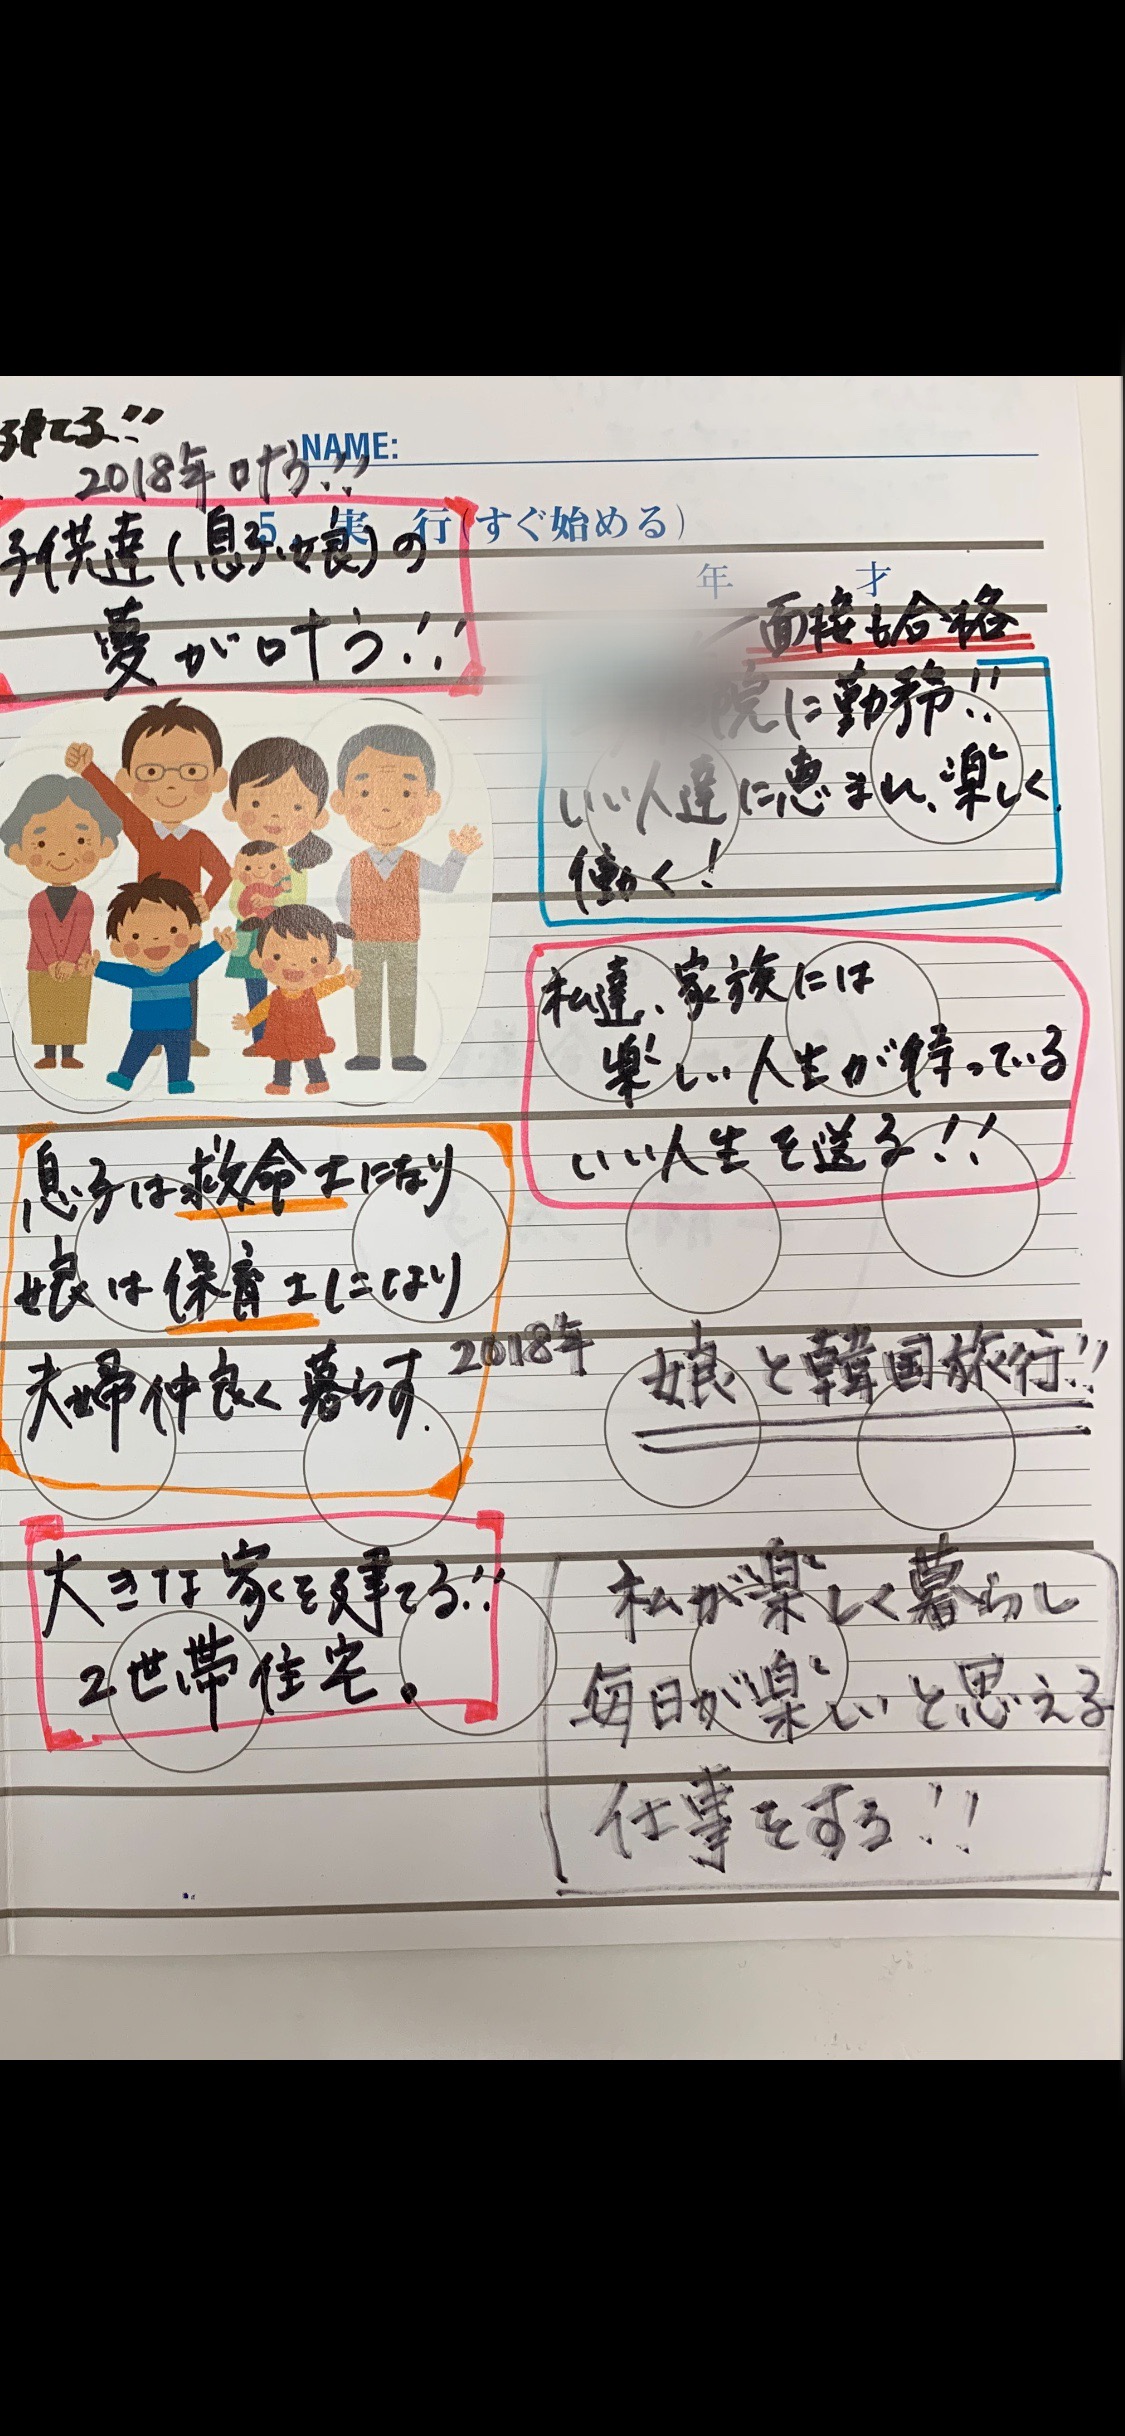 建てる!!
NAME:
2018年叶う!!
5. 実 行(すぐ始める)
子供達(息子、娘)の
夢が叶う!!
年 才
面接も合格
院に勤務!!
いい人達に恵まれ、楽しく
働く!
私達、家族には
楽しい人生が待っている
いい人生を送る!!
息子は救命士になり
娘は保育士になり
夫婦仲良く暮らす.
2018年 娘と韓国旅行!!
大きな家を建てる!!
2世帯住宅。
私が楽しく暮らし
毎日が楽しいと思える
仕事をする!!